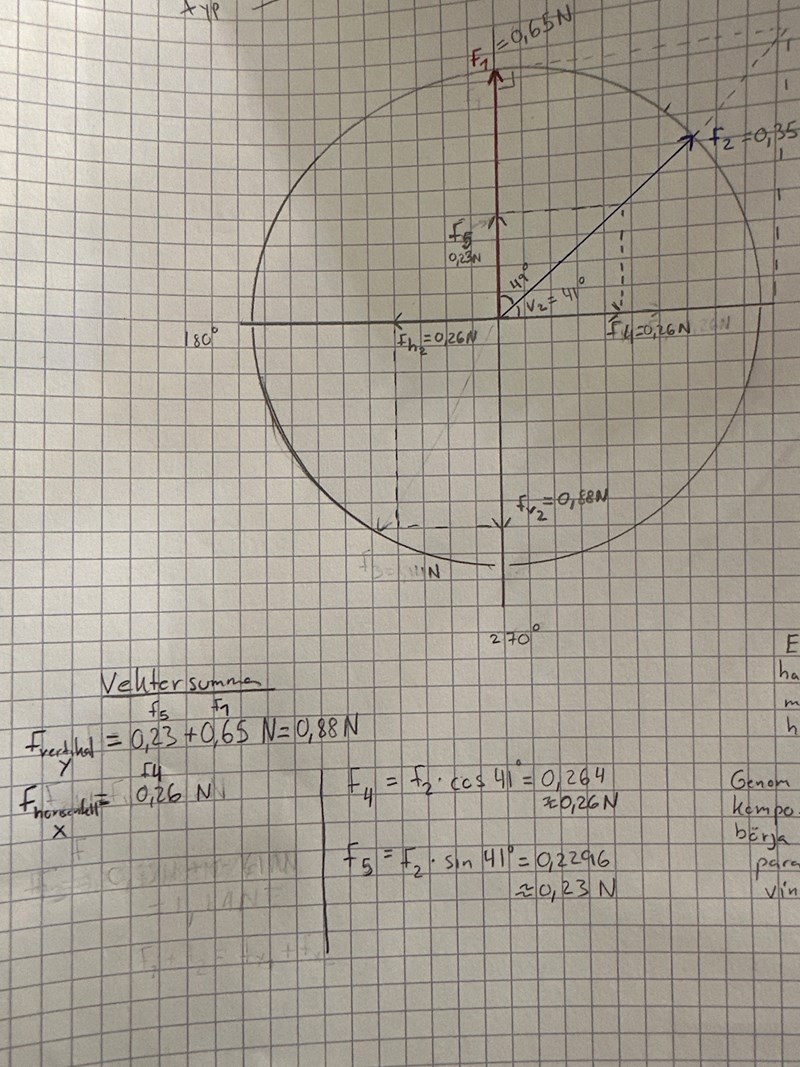 typ
F₁ = 0,65N
f₂ = 0,35
f₅
0,23N
49°
v₂ = 41°
180°
fh₂ = 0,26N
f₄ = 0,26N
fv₂ = 0,88N
270°
E
ha
m
h
Vektorsumma
f₅ f₁
Fvertikal = 0,23 + 0,65 N = 0,88 N
y
f₄
= 0,26 N
x
F₄ = f₂ · cos 41° = 0,264
≈ 0,26N
F₅ = F₂ · sin 41° = 0,2296
≈ 0,23 N
Genom
kompo.
börja
para
vin